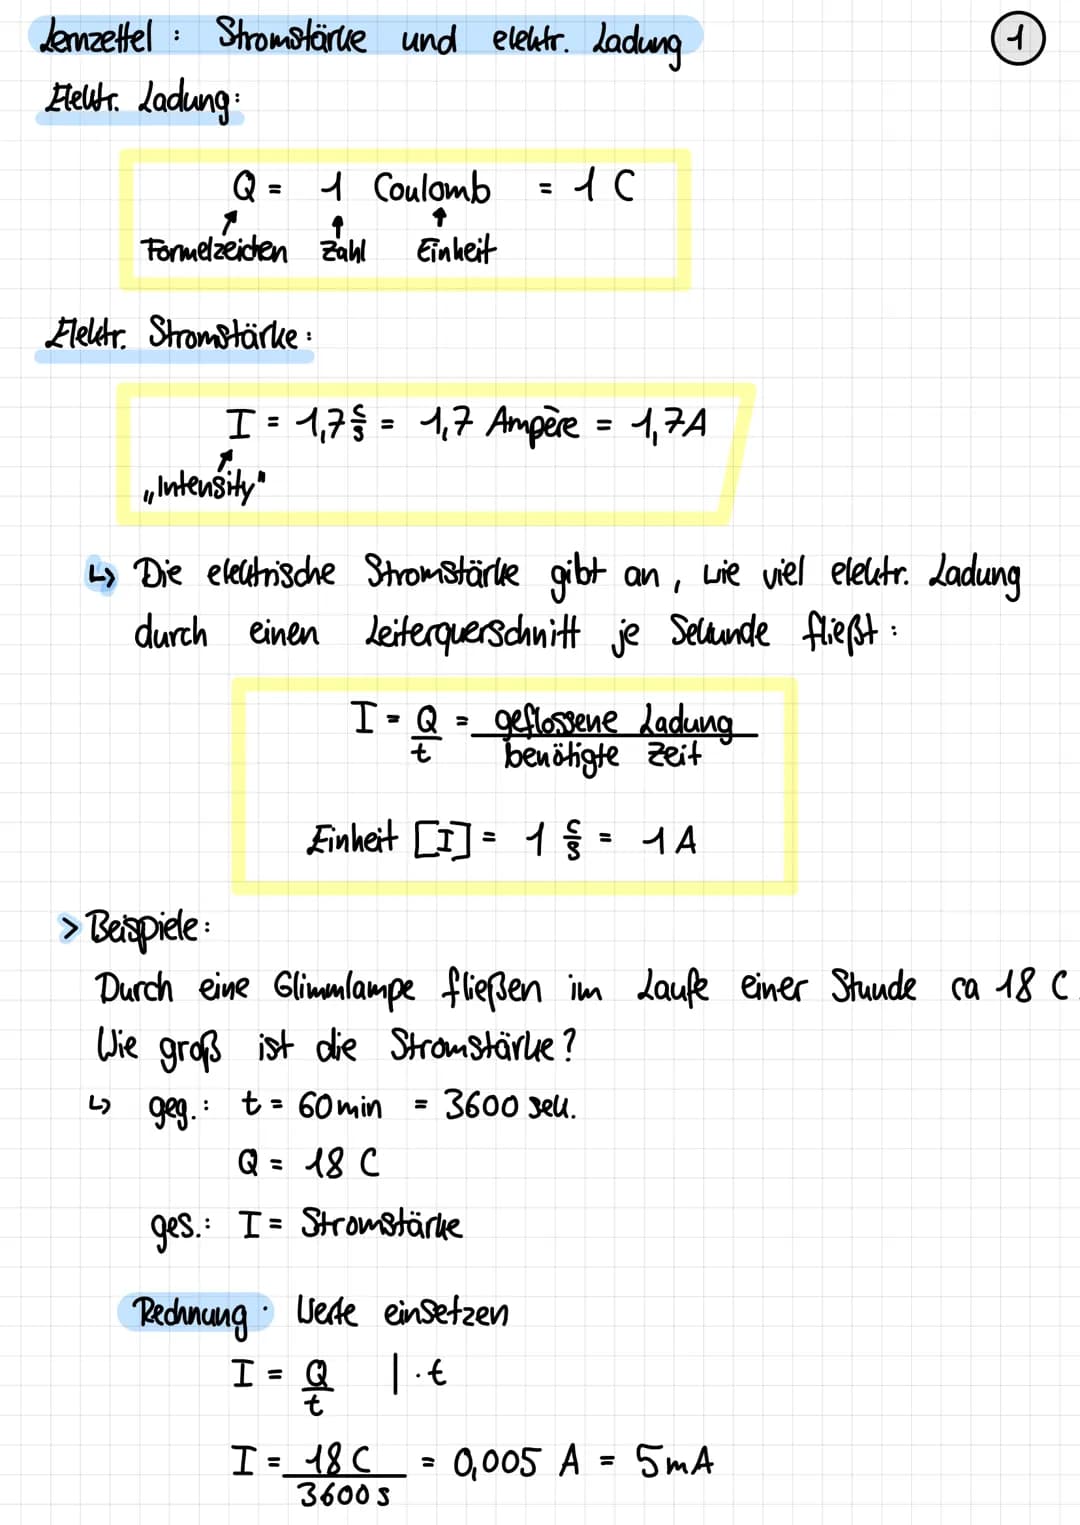 Lernzettel : Stromstärke und elektr. Ladung
1
Elektr. Ladung:
Q = 1 Coulomb = 1 C
Formelzeichen Zahl Einheit
Elektr. Stromstärke :
I = 1,7 C/s = 1,7 Ampère = 1,7A
„Intensity"
↳ Die elektrische Stromstärke gibt an, wie viel elektr. Ladung
durch einen Leiterquerschnitt je Sekunde fließt :
I = Q/t = geflossene Ladung / benötigte Zeit
Einheit [I] = 1 C/s = 1 A
> Beispiele :
Durch eine Glimmlampe fließen im Laufe einer Stunde ca 18 C.
Wie groß ist die Stromstärke?
↳ geg. : t = 60 min = 3600 sek.
Q = 18 C
ges. : I = Stromstärke
Rechnung : Werte einsetzen
I = Q/t | · t
I = 18 C / 3600 s = 0,005 A = 5mA